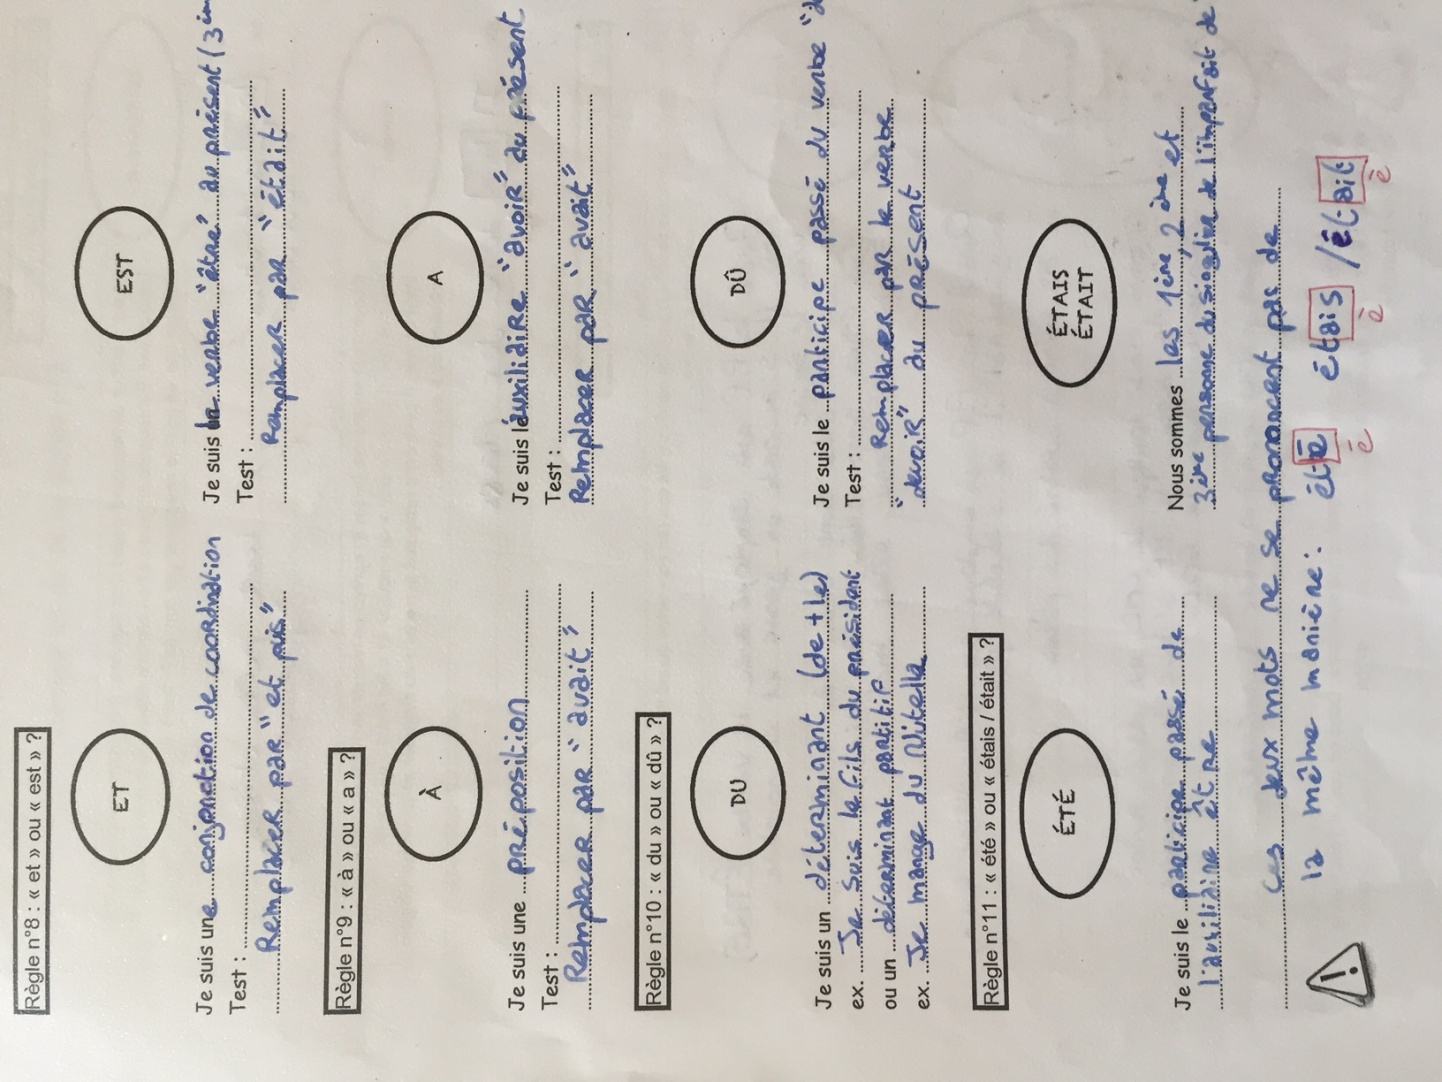 Règle n°8 : « et » ou « est » ?
ET
EST
Je suis une conjonction de coordination
Test :
Remplacer par "et puis"
Je suis le verbe "être" au présent (3
Test :
Remplacer par "était"
Règle n°9 : « à » ou « a » ?
À
A
Je suis une préposition
Test :
Remplacer par "avait"
Je suis l'auxiliaire "avoir" au présent
Test :
Remplacer par "avait"
Règle n°10 : « du » ou « dû » ?
DU
DÛ
Je suis un déterminant (de + le)
ex. Je suis le fils du président
ou un déterminant partitif
ex. Je mange du Nutella
Je suis le participe passé du verbe
Test :
Remplacer par le verbe
"devoir" au présent
Règle n°11 : « été » ou « étais / était » ?
ÉTÉ
ÉTAIS
ÉTAIT
Je suis le participe passé de
l'auxiliaire être
Nous sommes les 1ère, 2ème et
3ème personne du singulier de l'imparfait de
Ces deux mots ne se prononcent pas de
la même manière : été étais / était
é è è